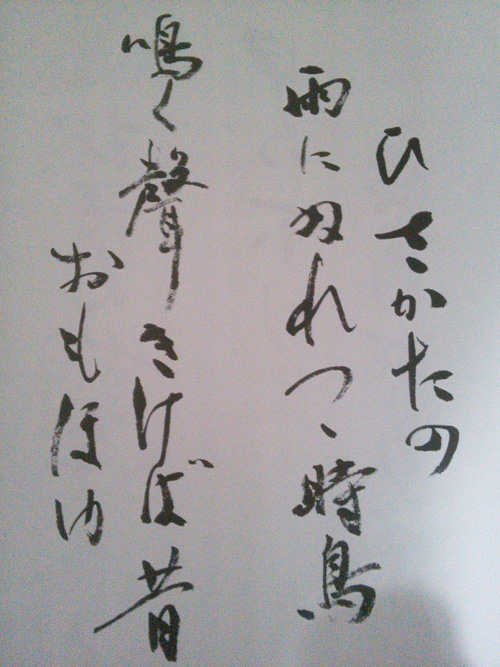 ひさかたの
雨にぬれつゝ時鳥
鳴く聲きけば昔
おもほゆ